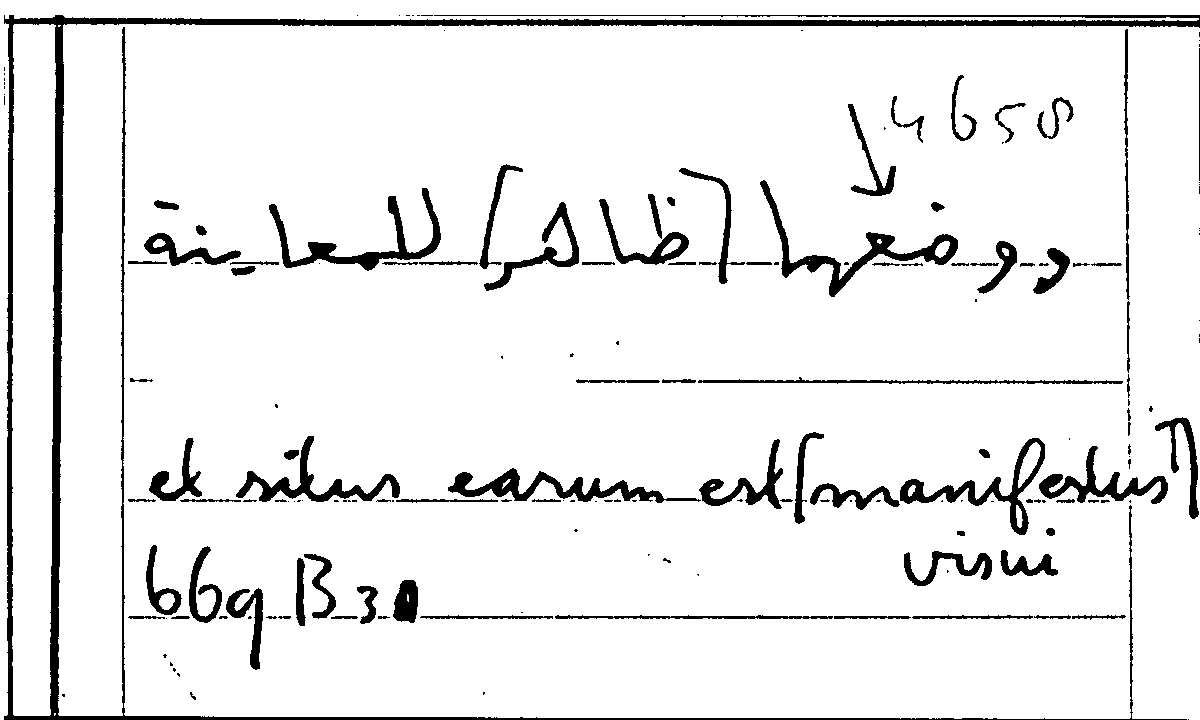 4658
ووضعها [ظاهر] للمعاينة
et situs earum est [manifestus]
visui
669 B 3